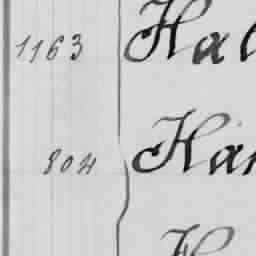 1163 Hal
804 Han